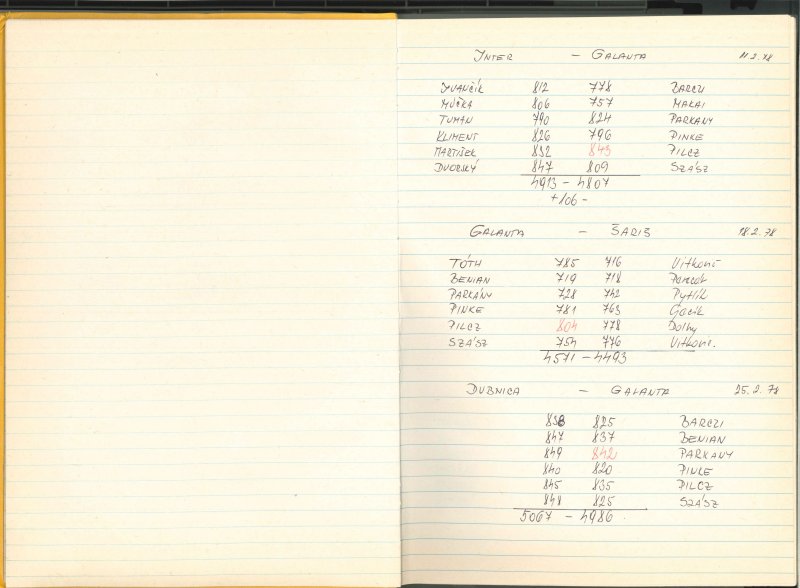 INTER - GALANTA 11.2.78
IVANČÍK 812 778 BARCZI
MÚČKA 806 757 MAKAI
TUMAN 790 824 PARKANY
KLIMENT 826 796 PINKE
MARTIŠEK 832 843 PILCZ
DVORSKÝ 847 809 SZÁSZ
4913 - 4807
+106 -
GALANTA - ŠARIŠ 18.2.78
TÓTH 785 716
BENIAN 719 718
PARKÁNY 728 742 Pytlík
PINKE 781 763 Gacík
PILCZ 804 778 Dolhy
SZÁSZ 754 776
4571 - 4493
DUBNICA - GALANTA 25.2.78
838 825 BARCZI
847 837 BENIAN
849 842 PARKANY
840 820 PINKE
845 835 PILCZ
848 825 SZÁSZ
5067 - 4986